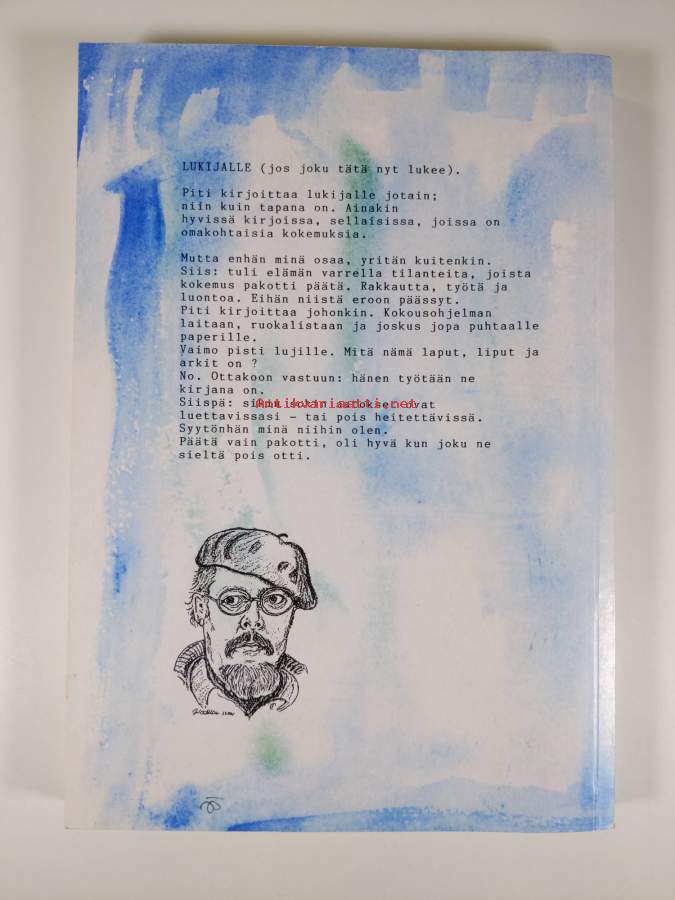 LUKIJALLE (jos joku tätä nyt lukee).
Piti kirjoittaa lukijalle jotain;
niin kuin tapana on. Ainakin
hyvissä kirjoissa, sellaisissa, joissa on
omakohtaisia kokemuksia.
Mutta enhän minä osaa, yritän kuitenkin.
Siis: tuli elämän varrella tilanteita, joista
kokemus pakotti päätä. Rakkautta, työtä ja
luontoa. Eihän niistä eroon päässyt.
Piti kirjoittaa johonkin. Kokousohjelman
laitaan, ruokalistaan ja joskus jopa puhtaalle
paperille.
Vaimo pisti lujille. Mitä nämä laput, liput ja
arkit on ?
No. Ottakoon vastuun: hänen työtään ne
kirjana on.
Siispä: ovat
Antikvariaatti.net
luettavissasi - tai pois heitettävissä.
Syytönhän minä niihin olen.
Päätä vain pakotti, oli hyvä kun joku ne
sieltä pois otti.